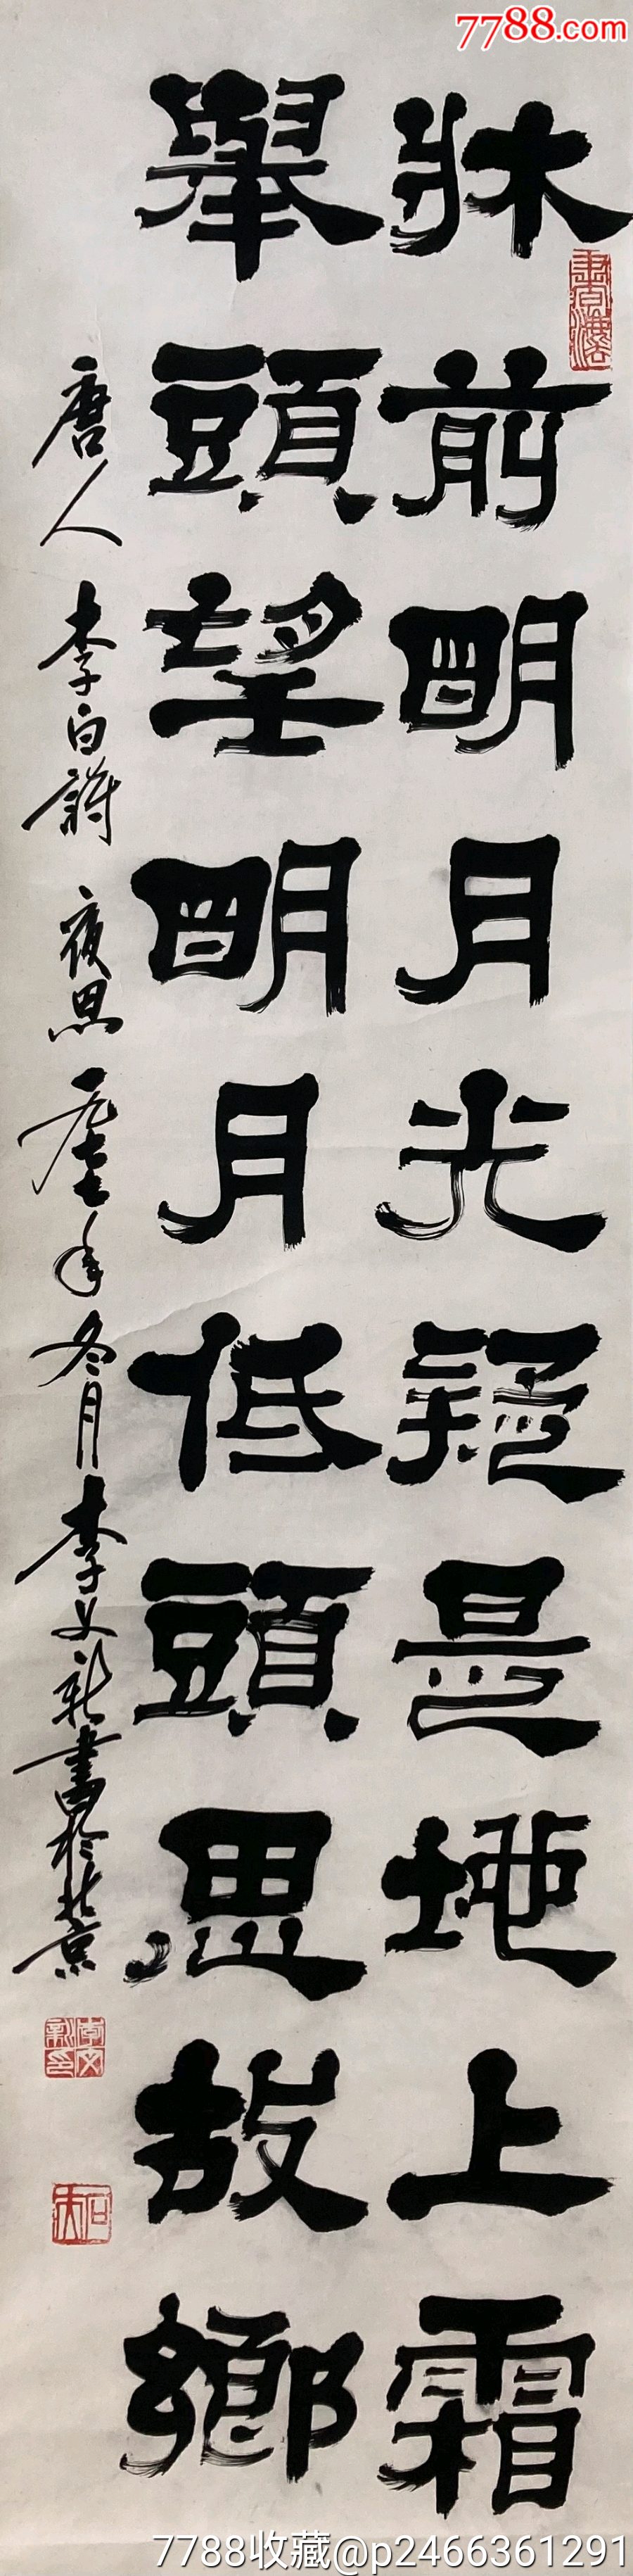 7788.com
牀前明月光疑是地上霜
舉頭望明月低頭思故鄉
唐人李白詩夜思 年冬月李文新書於北京
李文新印
7788收藏@p2466361291